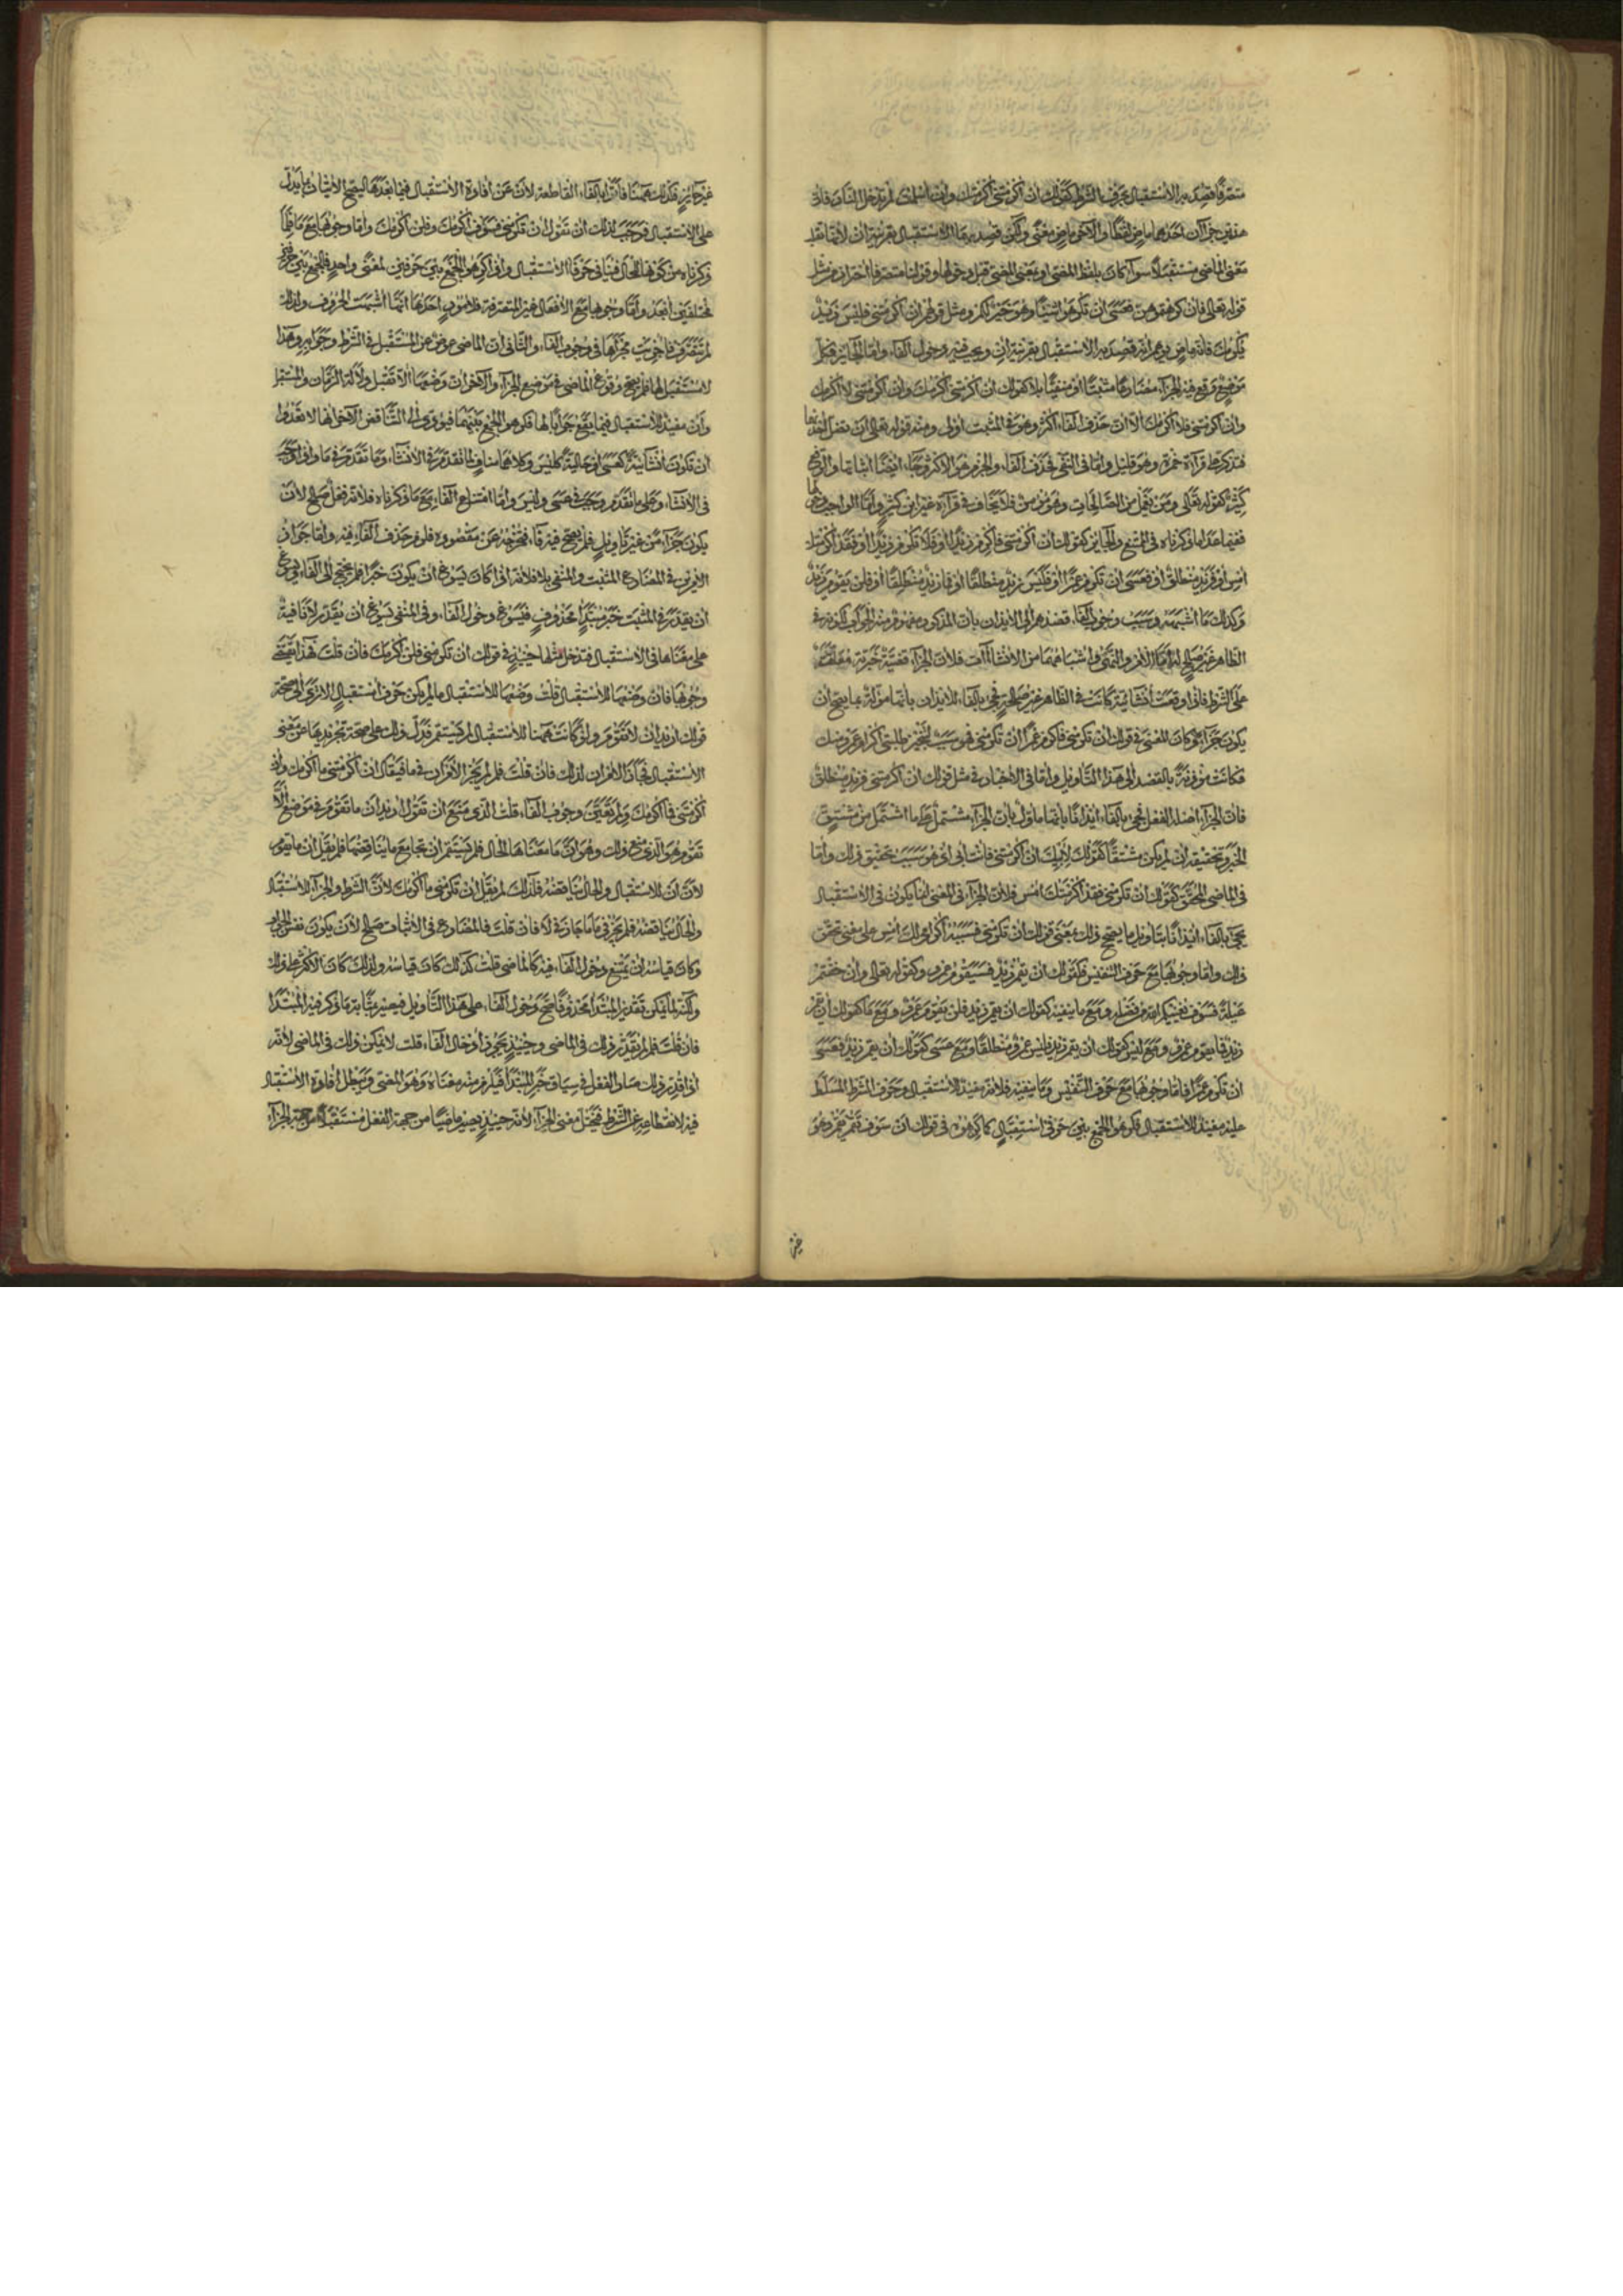 متصرفا قصد به الاستقبال بحرف الشرط كقولك ان اكرمتني اكرمتك وان اسلمت لم تدخل النار فان
هذين جزآن احدهما ماض لفظا والآخر ماض معنى ولكن قصد بهما الاستقبال بقرينة ان لانها تقلب
معنى الماضي مستقبلا سواء كان بلفظ المضي او بمعنى المضي قبل دخولها وقولنا متصرفا احتراز من مثل
قوله تعالى فان كرهتموهن فعسى ان تكرهوا شيئا وهو خير لكم ومثل قولهم ان اكرمتني فليس زيد
يكرمك فانه ماض قصد به الاستقبال بقرينة ان ويجب فيه دخول الفاء واما الجايز فكل
موضع وقع فيه الجزاء مضارعا مثبتا او منفيا بلا كقولك ان اكرمتني اكرمك وان اكرمتني لا اكرمك
وان اكرمتني فلا اكرمك الا ان حذف الفاء اكثر وهو في المثبت اولى ومنه قوله تعالى ان تضل احديهما
فتذكر على قراءة حمزة وهو قليل واما في النفي فحذف الفاء والجزم هو الاكثر وجاء ايضا اثباتها والرفع
كثير كقوله تعالى ومن يعمل من الصالحات وهو مؤمن فلا يخاف في قراءة غير ابن كثير واما الواجب دخولها
ففيما عدا ما ذكرناه في الممتنع والجايز كقولك ان اكرمتني فاكرم زيدا او فلا تكرم زيدا او فقد اكرمتك
امس او فزيد منطلق او فعسى ان تكرم عمرا او فليس زيد منطلقا او فما زيد منطلقا او فلن يقوم زيد
وكذلك ما اشبهه وسبب وجوب الفاء قصدهم الى الايذان بان المذكور بعد
الظاهر غير صالح له اما الامر والنهي واشباههما من الانشاءات فلان الجزاء قضية خبرية معلقة
على الشرط فاذا وقعت انشائية كانت في الظاهر غير صالحة فجيء بالفاء للايذان بانها مؤلة بما يصح ان
يكون جزاء فكان المعنى في قولك ان تكرمني فاكرم عمرا ان تكرمني فهو سبب لتنجيز طلبي اكرام عمرو منك
فكانت مؤذنة بالقصد الى هذا التاويل واما في الاخبار في مثل قولك ان اكرمتني فزيد منطلق
فان الجزاء اصله الفعل فجيء بالفاء ايذانا بانها مأول بان الجزاء مشتمل على ما اشتمل من مشتق
الخبر وتحقيقه ان لم يكن مشتقا كقولك لابيك ان اكرمتني فانت ابي اي هو سبب تحقيق ذلك واما
في الماضي المحقق كقولك ان تكرمني فقد اكرمتك امس فلان الجزاء في المعنى انما يكون في الاستقبال
فجيء بالفاء ايذانا بتاويل ما يصحح ذلك بمعنى قولك ان تكرمني فسببه اكرامي لك امس على معنى تحقق
ذلك واما وجوبها مع حرف التنفيس فكقولك ان يقم زيد فسيقوم عمرو وكقوله تعالى وان خفتم
عيلة فسوف يغنيكم الله من فضله ومع ما ينفيه كقولك ان يقم زيد فلن يقوم عمرو ومع ما كقولك ان يقم
زيد فما يقوم عمرو ومع ليس كقولك ان يقم زيد فليس عمرو منطلقا ومع عسى كقولك ان يقم زيد فعسى
ان تكرم عمرا فاما وجوبها مع حرف التنفيس وما ينفيه فلانه مفيد للاستقبال وحرف الشرط المسلط
عليه مفيد للاستقبال فكرهوا الجمع بين حرفي استقبال كما كرهوه في قولك ان سوف تقم وهو
غير
غير جايز فكذلك ههنا فاتوا بالفاء القاطعة لان عن افادة الاستقبال فيما بعدها ليصح الاتيان بما يدل
على الاستقبال فوجب لذلك ان تقول ان تكرمني فسوف اكرمك وفلن اكرمك واما وجوبها مع ما فلما
ذكرناه من كونها للحال فينافي حرف الاستقبال واذا كرهوا الجمع بين حرفين لمعنى واحد فالجمع بين حرفين
مختلفين ابعد واما وجوبها مع الافعال غير المتصرفة فلامور احدها انها اشبهت الحروف ولذلك
لم تتصرف فاجريت مجراها في وجوب الفاء والثاني ان الماضي عوض عن المستقبل في الشرط وجوابه وهذا
لا مستقبل لها فلم يصح وقوع الماضي في موضع الجزاء والآخر ان وضعها الا تقبل دلالة الزمان والمستقبل
وان مفيد للاستقبال فيما يقع جوابا لها فكرهوا الجمع بينهما فيؤدي الى التناقض الآخر انها لا تعدوا
ان تكون انشائية كعسى او حالية كليس وكلاهما مناف لما تقدم في الانشاء وما تقدم في ما واذا وجب
في الانشاء وجب في عسى وليس واما امتناع الفاء نحو ما ذكرناه فلانه فعل صالح لان
يكون جزاء من غير تاويل فلم يصح فيه فاء تخرجه عن مقصوده فلزم حذف الفاء فيه واما جواز
الامرين في المضارع المثبت والمنفي بلا فلانه اذا كان يسوغ ان يكون خبرا فلم يحتج الى الفاء ويسوغ
ان يقدر في المثبت خبر مبتدإ محذوف فيسوغ دخول الفاء وفي المنفي يسوغ ان يقدر لا نافية
على معناها في الاستقبال فتدخل مثلها حينئذ في قولك ان تكرمني فلن اكرمك فان قلت فهذا يقتضي
وجوبها فان وضعها للاستقبال قلت وضعها للاستقبال ما لم يكن حرف استقبال الا ترى الى صحة
قولك اريد ان لا تقوم ولو كانت ههنا للاستقبال لم يستقم فدل ذلك على صحة تجريدها عن معنى
الاستقبال فجاز الامران لذلك فان قلت فلم لم يجز الامران في ما فيقال ان اكرمتني ما اكرمك وان
اكرمتني فما اكرمك ولم تعين وجوب الفاء قلت الذي منع ان تقول اريد ان ما تقوم في موضع الا
تقوم هو الذي منع ذلك وهو ان ما معناها الحال فلم يستقم ان تجامع ما يناقضها فلم يقل ان ما يقوم
لان ان للاستقبال والحال يناقضه فلذلك لم يقل ان تكرمني ما اكرمك لان الشرط والجزاء للاستقبال
والحال يناقضه فلم يجز في ما ما جاز في لا فان قلت فالمضارع في الاثبات صالح لان يكون نفس الجزاء
وكان قياسه ان يمتنع دخول الفاء فيه كالماضي قلت كذلك كان قياسه ولذلك كان الاكثر على ذلك
ولكنه لما يمكن تقدير المبتدأ محذوفا صح دخول الفاء على هذا التاويل فيصير بمثابة ما ذكر فيه المبتدا
فان قلت فلم لم يقدر ذلك في الماضي وحينئذ يجوز ادخال الفاء قلت لا يمكن ذلك في الماضي لانه
اذا قدر ذلك صار الفعل في سياق خبر المبتدا فيلزم منه معناه وهو المضي ويبطل افادة الاستقبال
فيه لانقطاعه عن الشرط فيختل معنى الجزاء لانه حينئذ يصير ماضيا من جهة الفعل مستقبلا من جهة الجزاء